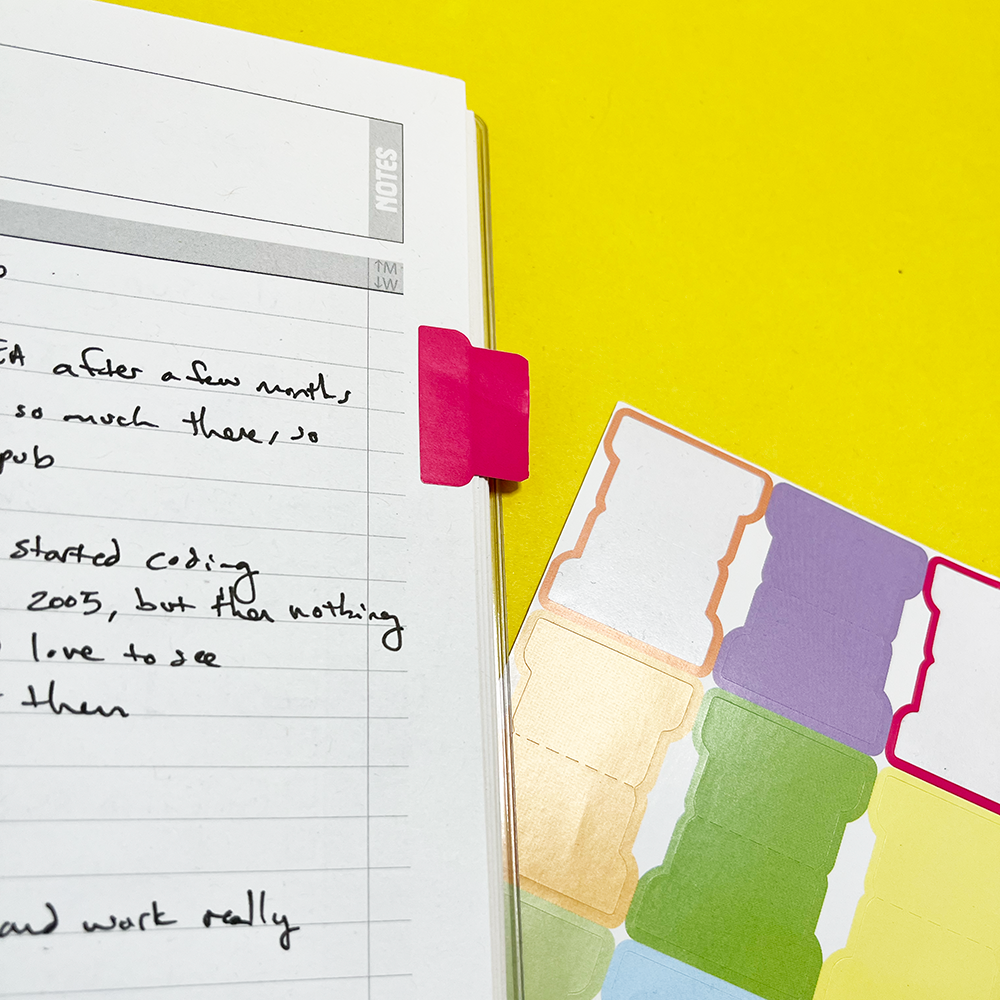 NOTES
↑M
↓W
EA after a few months
so much there, so
pub
started coding
2005, but then nothing
love to see
then
and work really